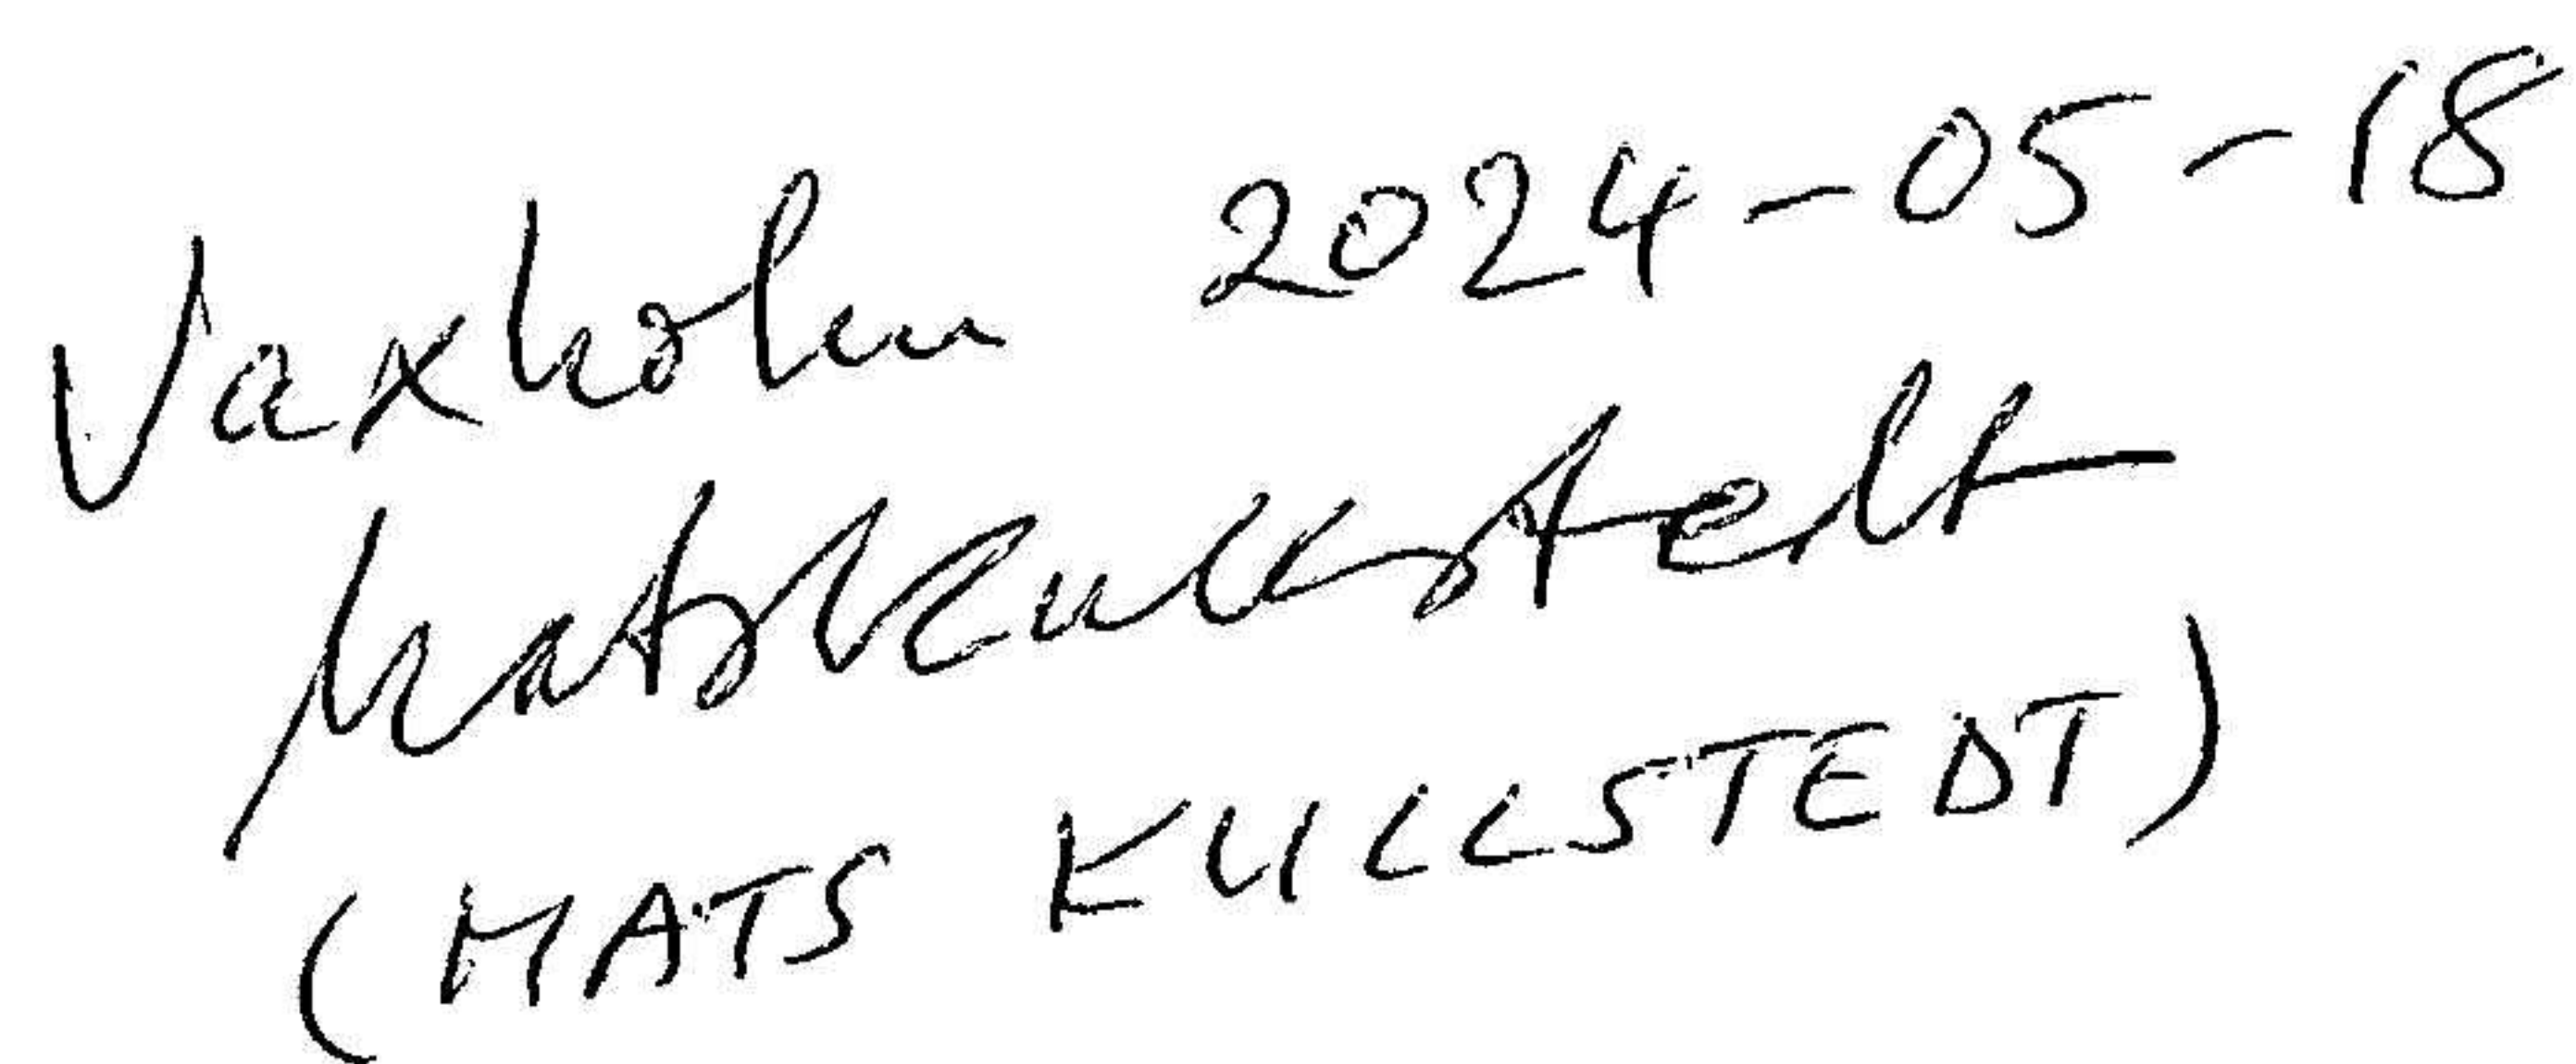 Vaxholm 2024-05-18
Mats Kullstedt
(MATS KULLSTEDT)